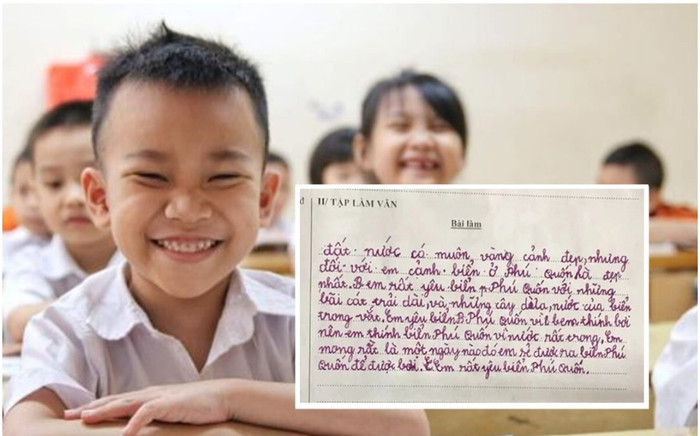 II/ TẬP LÀM VĂN
Bài làm
đất nước có muôn, vàng cảnh đẹp, nhưng
đối với em cảnh biển ở Phú Quốn là đẹp
nhất. em rất yêu biển p. Phú Quốn với những
bãi cát trải dài, và những cây dừa, nước của biển
trong vắt. Em yêu biển Phú Quốn vì em thính bơi
nên em thính biển Phú Quốn vì nước rất trong, Em
mong rất là một ngày nào đó em sẽ được ra biển Phú
Quốn để được bơi. Em rất yêu biển Phú Quốn.